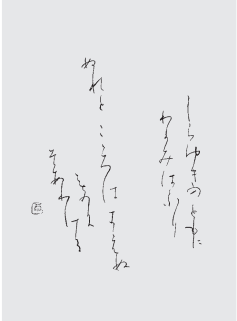 しらゆきのともに
わかみはふり
ぬれとこゝろはきえぬ
ものに
そありける